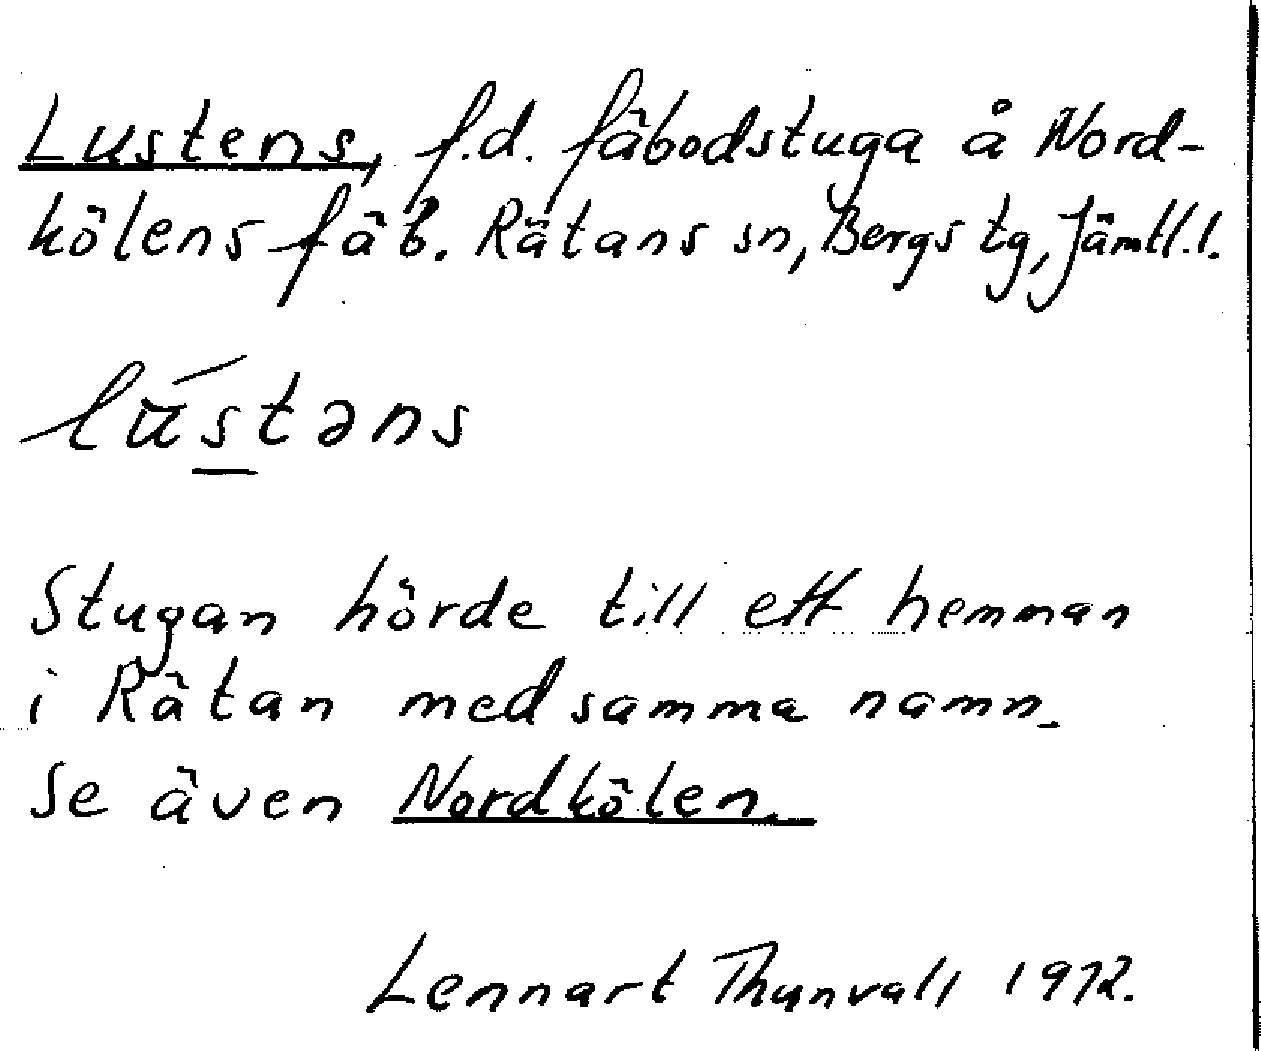 Lustens, f.d. fäbodstuga å Nord-
kölens fäb. Rätans sn, Bergs tg, Jämtl.l.
lústəns
Stugan hörde till ett hemman
i Rätan med samma namn.
Se även Nordkölen.
Lennart Thunvall 1972.